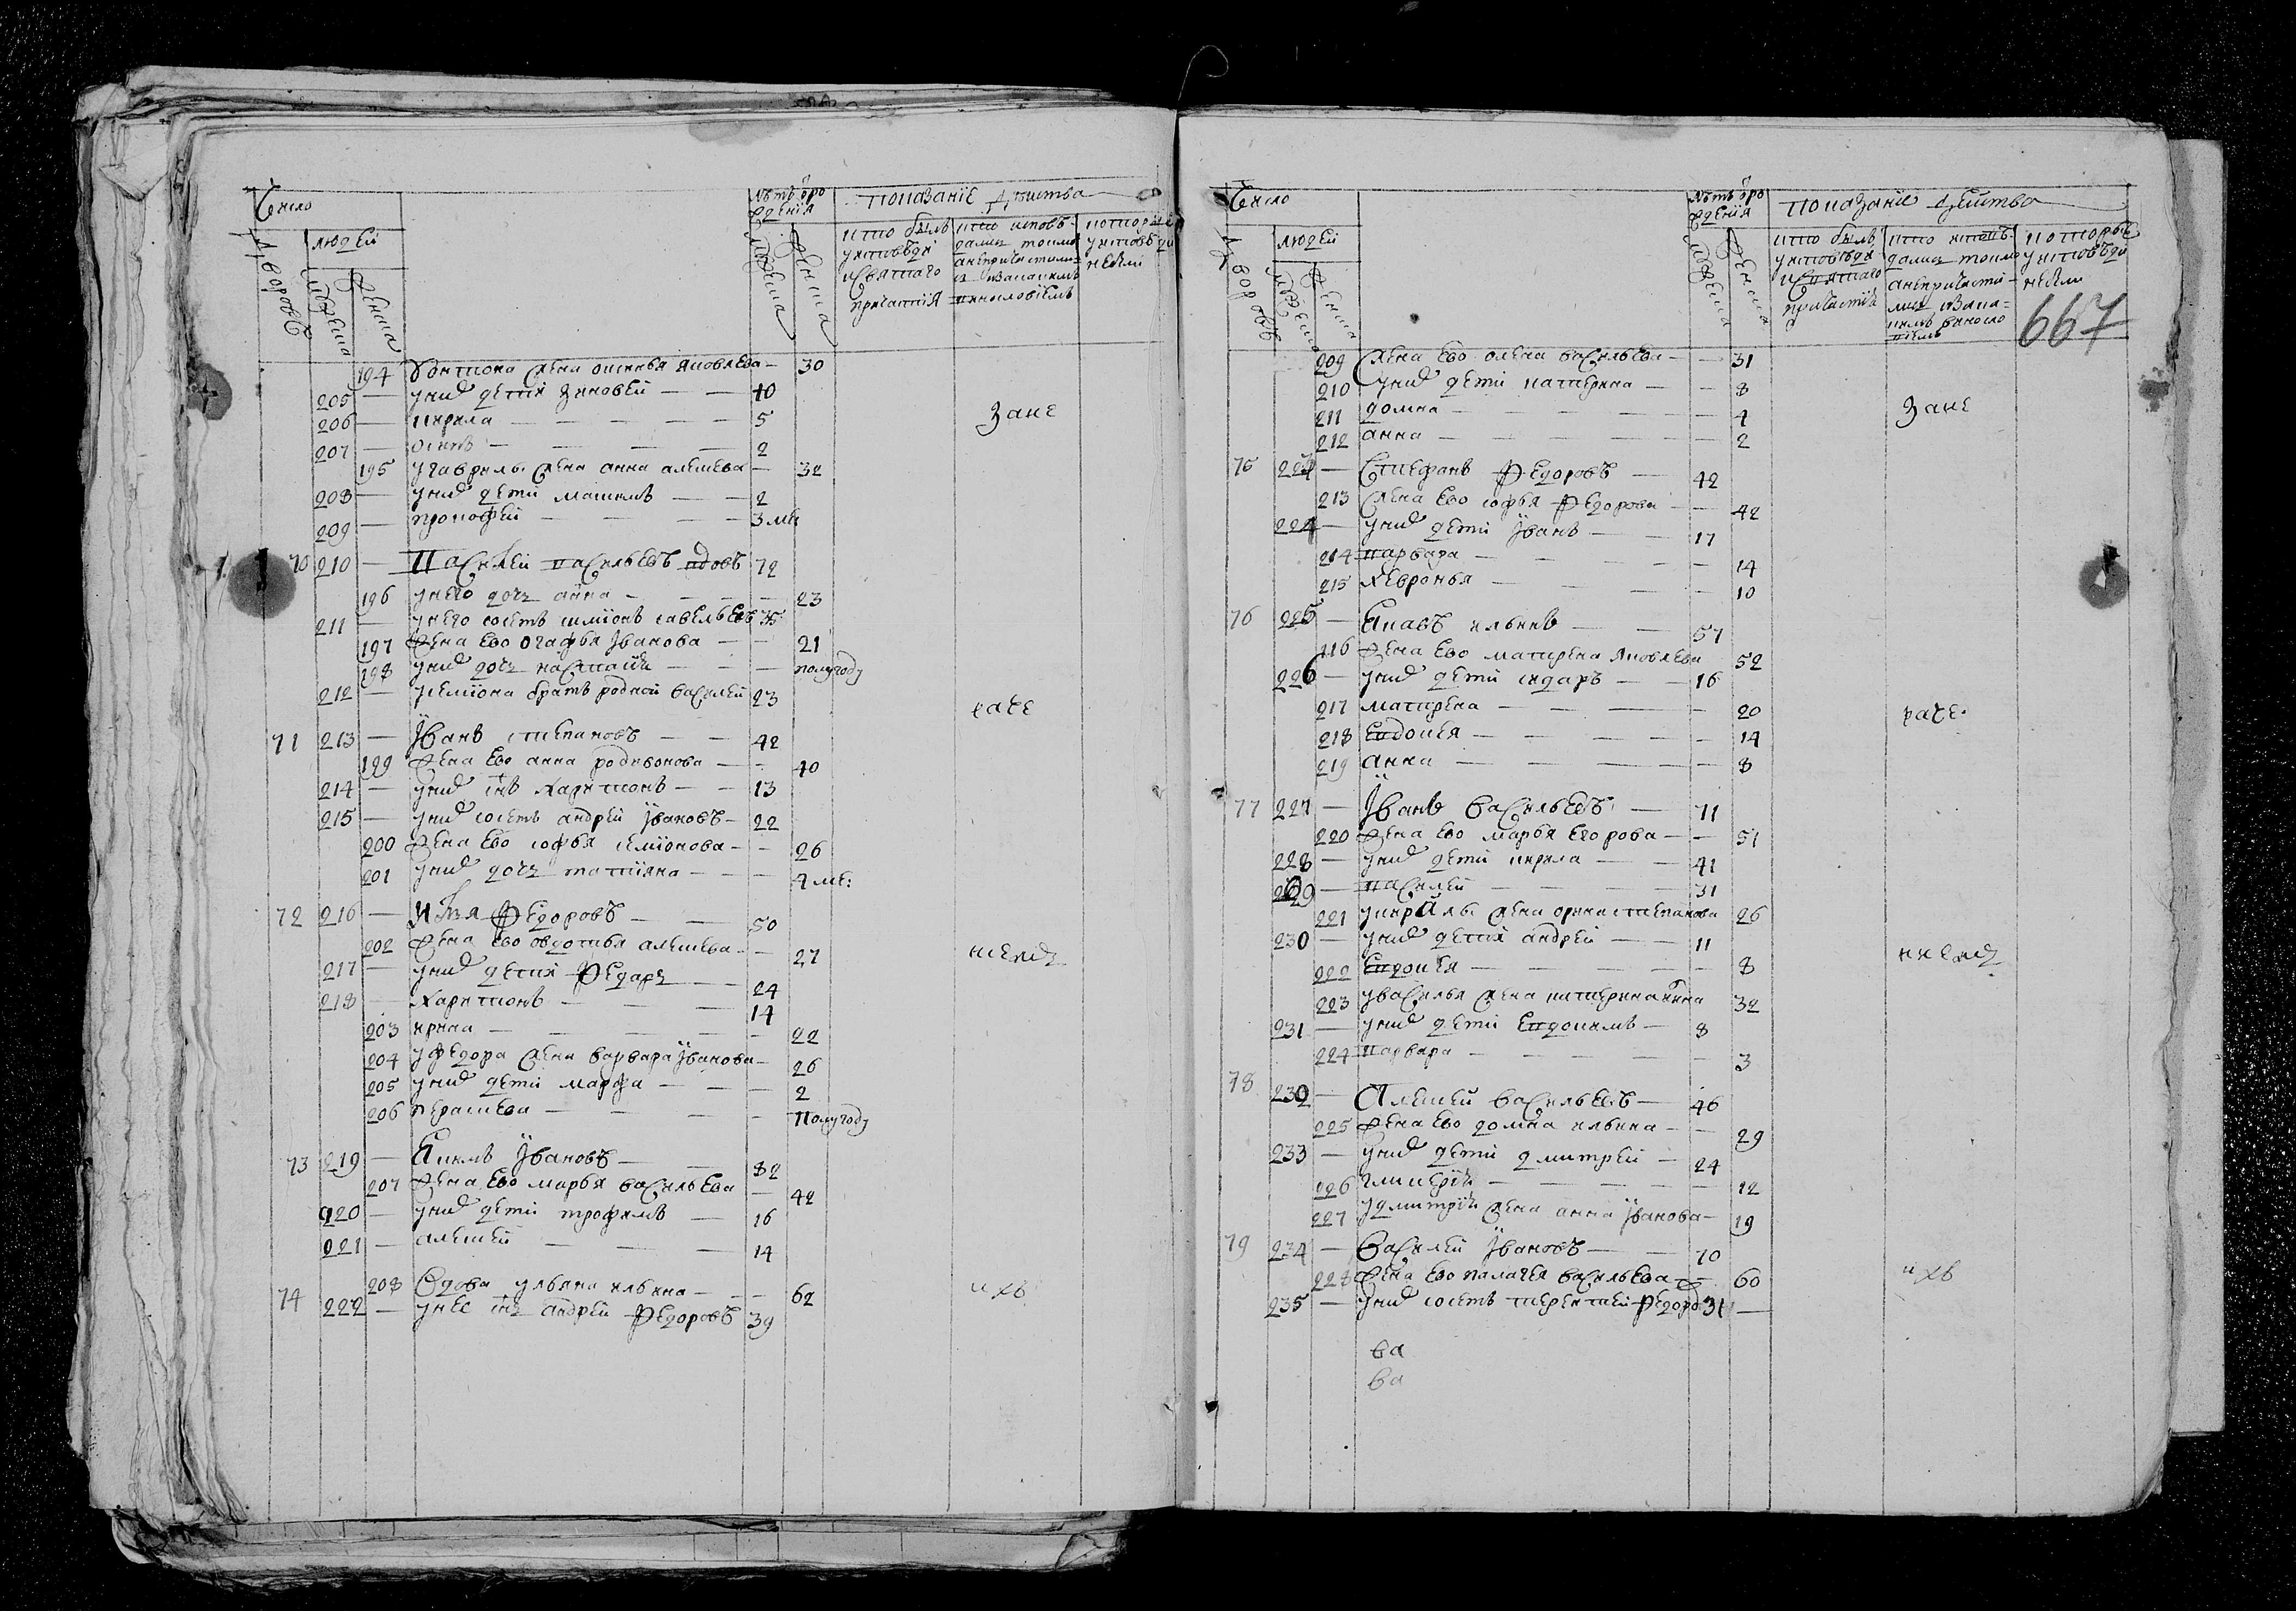 Число
Дворовъ
людей
мужеска
женска
лѣтъ от рождения
мужеска
женска
показание действа
кто былъ
у исповѣди
и святаго
причастия
194 жена Яковлева 30
205 у них дети Зиновей 10
206 Кирила 5
207 Осипъ 2
195 у Гаврилы жена Анна Алексеева 32
208 у них дети Максимъ 2
209 Прокофей 3 ме
70 210 Василей Васильевъ вдовъ 72
196 у него дочь Анна 23
211 у него соседъ Симионъ Савельевъ 35
197 жена ево Огафья Иванова 21
198 у них дочь Настасия полугоду
212 у Семиона братъ родной Василей 23
71 213 Иванъ Степановъ 42
199 жена ево Анна Родивонова 40
214 у них снъ Харитонъ 13
215 у них соседъ Андрей Ивановъ 22
200 жена ево Софья Семионова 26
201 у них дочь Татияна 4 ме:
72 216 Илья Федоровъ 50
202 жена ево Овдотья Алексеева 27
217 у них дети Федоръ 24
218 Харитонъ 14
203 Ирина 22
204 у Федора жена Варвара Иванова 26
205 у них дети Марфа 2
206 Парасковья полугоду
73 219 Екимъ Ивановъ 82
207 жена ево Марья Васильева 42
220 у них дети Трофимъ 16
221 Алексей 14
74 208 вдова Ульяна Ильина 62
222 у нее снъ Андрей Федоровъ 39
зане
раче
ихъ
Число
Дворовъ
людей
мужеска
женска
лѣтъ от рождения
мужеска
женска
показание действа
кто былъ
у исповѣди
и святаго
причастия
667
209 жена ево Олена Васильева 31
210 у них дети Катерина 8
211 Домна 4
212 Анна 2
75 223 Стефанъ Федоровъ 42
213 жена ево Софья Федорова 42
224 у них дети Иванъ 17
214 Варвара 14
215 Хевронья 10
76 225 ильинъ 57
116 жена ево Матрена Яковлева 52
226 у них дети Сидаръ 16
217 Матрена 20
218 Евдокея 14
219 Анна 8
77 227 Иванъ Васильевъ 71
220 жена ево Марья Егорова 51
228 у них дети Кирила 41
229 Василей 31
221 у Кирилы жена Орина Степанова 26
230 у них дети Андрей 11
222 Евдокея 8
223 у Василья жена Катерина 32
231 у них дети Евдокимъ 8
224 Варвара 3
78 232 Алексей Васильевъ 46
225 жена ево Домна Ильина 29
233 у них дети Дмитрей 24
226 Гликерия 12
227 у Дмитрия жена Анна Иванова 19
79 234 Василей Ивановъ 70
228 жена ево Палагея Васильева 60
235 у них соседъ Терентей Федоровъ 31
ва
ва
зане
раче
ихъ